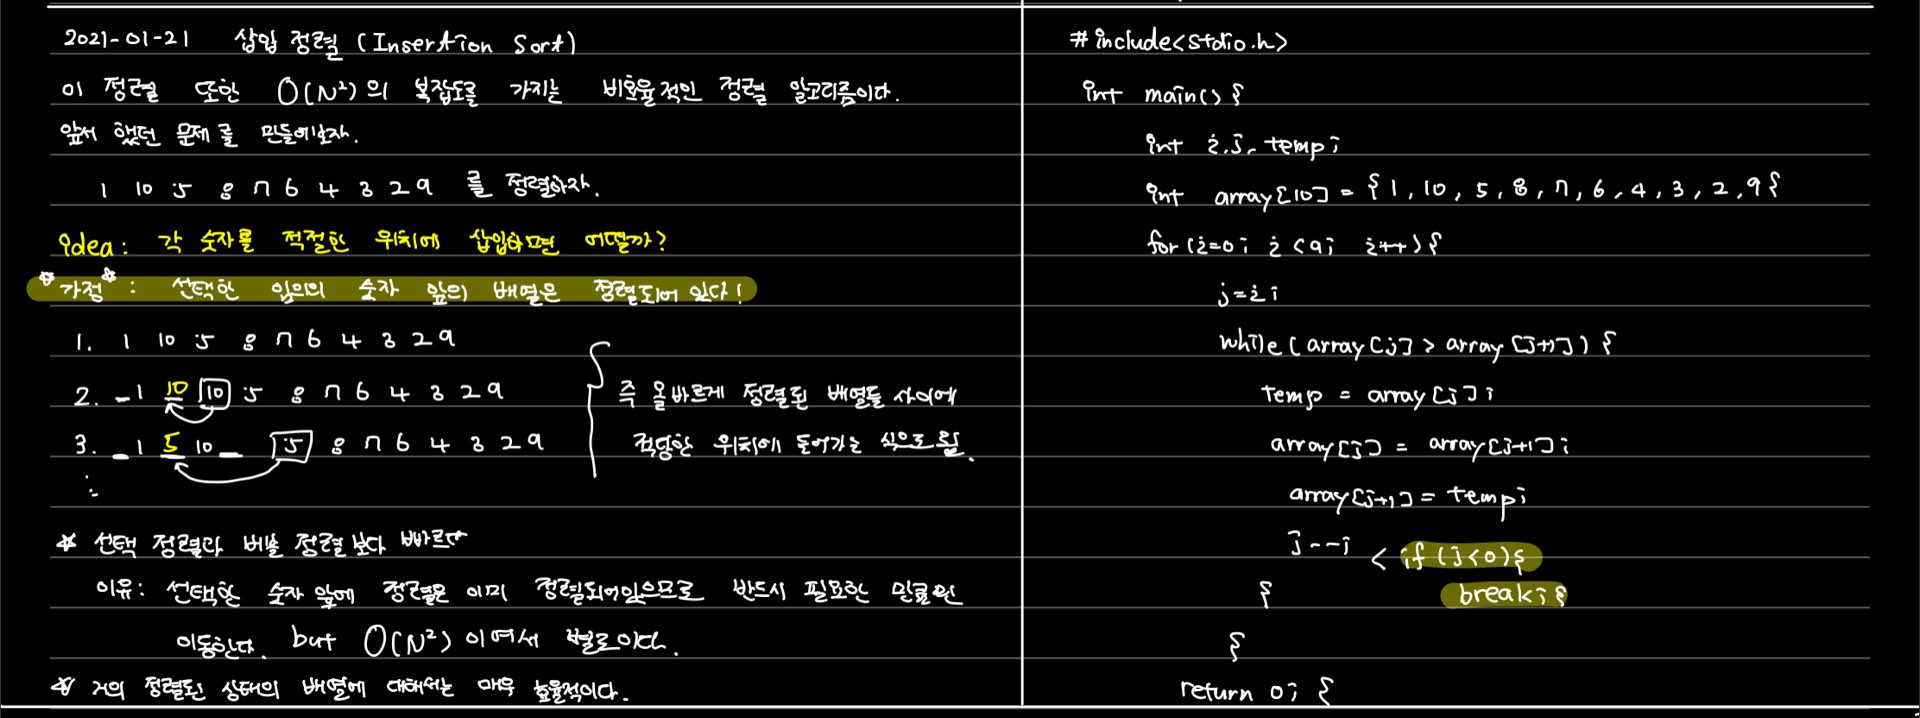 2021-01-21 삽입 정렬 (Insertion Sort)
이 정렬 또한 O(N²)의 복잡도를 가지는 비효율적인 정렬 알고리즘이다.
앞서 했던 문제를 만들어보자.
1 10 5 8 7 6 4 3 2 9 를 정렬하자.
idea: 각 숫자를 적절한 위치에 삽입하면 어떨까?
*가정*: 선택한 임의의 숫자 앞의 배열은 정렬되어 있다!
1. 1 10 5 8 7 6 4 3 2 9
2. _ 1 10 10 5 8 7 6 4 3 2 9
3. _ 1 5 10 _ 5 8 7 6 4 3 2 9
즉 올바르게 정렬된 배열들 사이에
적당한 위치에 들어가는 식으로 됨.
☆ 선택 정렬과 버블 정렬보다 빠르다
이유: 선택한 숫자 앞에 정렬은 이미 정렬되어있으므로 반드시 필요한 만큼만
이동한다. but O(N²) 이여서 별로이다.
☆ 거의 정렬된 상태의 배열에 대해서는 매우 효율적이다.
#include<stdio.h>
int main() {
int i, j, temp;
int array[10] = {1, 10, 5, 8, 7, 6, 4, 3, 2, 9}
for (i=0; i<9; i++) {
j=i;
while (array[j] > array[j+1]) {
temp = array[j];
array[j] = array[j+1];
array[j+1] = temp;
j--; < if (j<0){
} break;}
}
return 0; }